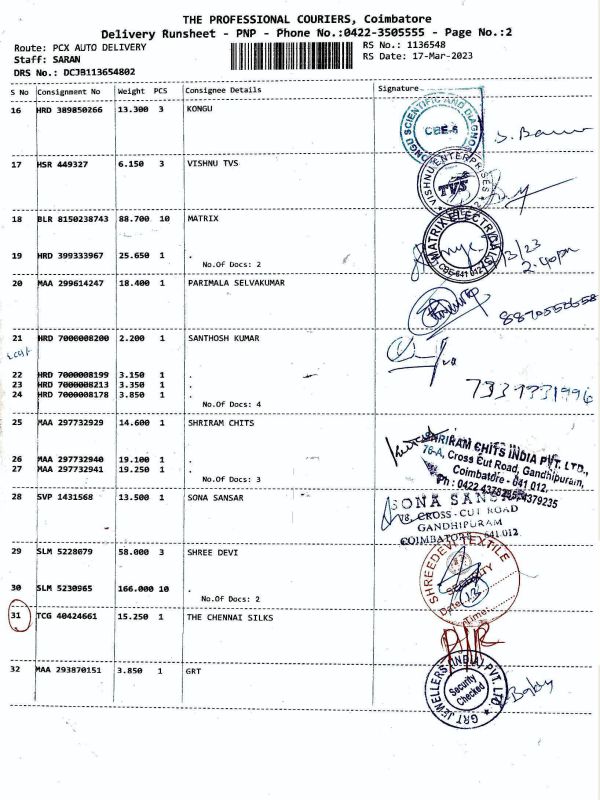 THE PROFESSIONAL COURIERS, Coimbatore
Delivery Runsheet - PNP - Phone No.:0422-3505555 - Page No.:2
Route: PCX AUTO DELIVERY
RS No.: 1136548
Staff: SARAN
RS Date: 17-Mar-2023
DRS No.: DCJB113654802
S No Consignment No Weight PCS Consignee Details Signature
16 HRD 389850266 13.300 3 KONGU
KONGU SCIENTIFIC AND DIAGNO
CBE-6
17 HSR 449327 6.150 3 VISHNU TVS
VISHNU ENTERPRISES
TVS
18 BLR 8150238743 88.700 10 MATRIX
MATRIX ELECTRICALS
CBE-641 012
19 HRD 399333967 25.650 1 .
No.Of Docs: 2
2.40pm
20 MAA 299614247 18.400 1 PARIMALA SELVAKUMAR
8870552658
21 HRD 7000008200 2.200 1 SANTHOSH KUMAR
22 HRD 7000008199 3.150 1 .
23 HRD 7000008213 3.350 1 .
24 HRD 7000008178 3.850 1 .
No.Of Docs: 4
7339331996
25 MAA 297732929 14.600 1 SHRIRAM CHITS
26 MAA 297732940 19.100 1 .
27 MAA 297732941 19.250 1 .
No.Of Docs: 3
SHRIRAM CHITS INDIA PVT. LTD.,
76-A, Cross Cut Road, Gandhipuram,
Coimbatore - 641 012.
Ph : 0422 4378235, 4379235
28 SVP 1431568 13.500 1 SONA SANSAR
SONA SANSAR
CROSS-CUT ROAD
GANDHIPURAM
COIMBATORE - 641 012
29 SLM 5228079 58.000 3 SHREE DEVI
30 SLM 5230965 166.000 10 .
No.Of Docs: 2
SHREEDEVI TEXTILE
SECURITY
Date:
Time:
31 TCG 40424661 15.250 1 THE CHENNAI SILKS
32 MAA 293870151 3.850 1 GRT
GRT JEWELLERS (INDIA) PVT. LTD.
Security
Checked
Baby